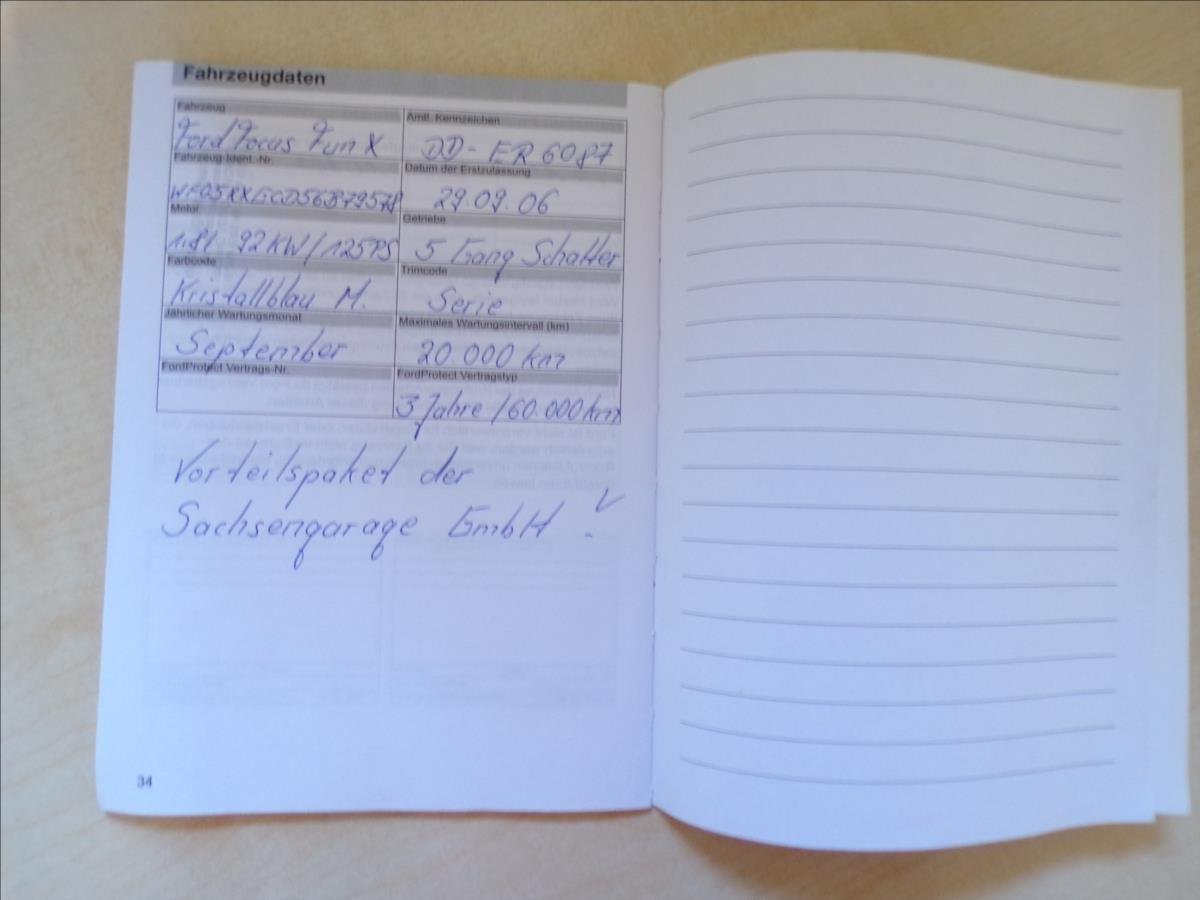 Fahrzeugdaten
Fahrzeug
Amtl. Kennzeichen
Ford Focus Fun X
DD-ER 6087
Fahrzeug-Ident.-Nr.
Datum der Erstzulassung
29.09.06
Motor
Getriebe
1.8l 92KW/125PS
5 Gang Schalter
Farbcode
Trimcode
Kristallblau M.
Serie
Jährlicher Wartungsmonat
Maximales Wartungsintervall (km)
September
20.000 km
FordProtect Vertrags-Nr.
FordProtect Vertragstyp
3 Jahre/60.000km
Vorteilspaket der
Sachsengarage GmbH
34